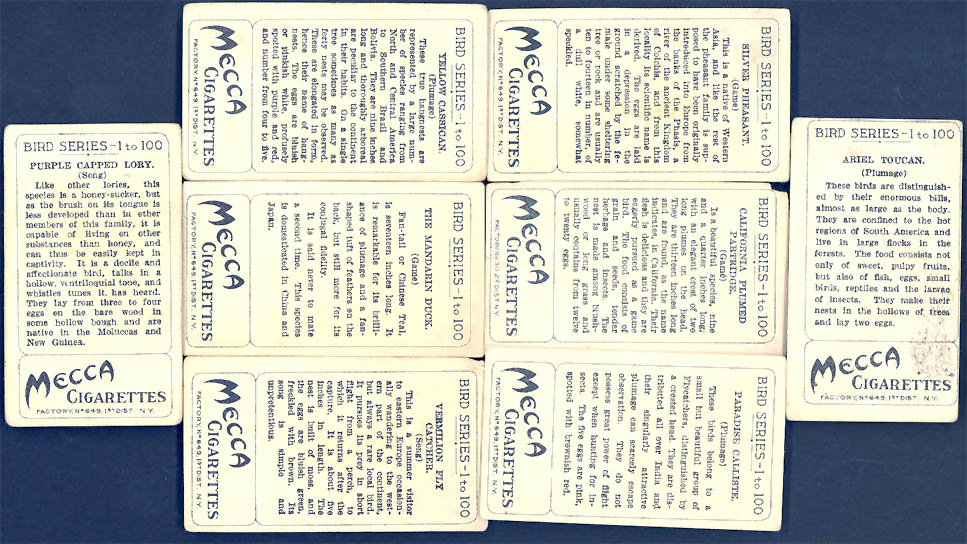 BIRD SERIES-1 to 100
PURPLE CAPPED LORY.
(Song)
Like other lories, this
species is a honey-sucker, but
as the brush on its tongue is
less developed than in other
members of this family, it is
capable of living on other
substances than honey, and
can thus be easily kept in
captivity. It is a docile and
affectionate bird, talks in a
hollow, ventriloquial tone, and
whistles tunes it has heard.
They lay from three to four
eggs on the bare wood in
some hollow bough and are
native in the Moluccas and
New Guinea.
MECCA
CIGARETTES
FACTORY, Nº 649, 1ST DIST. N.Y.
BIRD SERIES-1 to 100
YELLOW CASSICAN.
(Plumage)
These true hangnests are
represented by a large num-
ber of species ranging from
North and Central America
to Southern Brazil and
Bolivia. They are nine inches
long and thoroughly arboreal
are peculiar to the continent
in their habits. On a single
tree sometimes as many as
forty nests may be observed.
These are elongated in form,
hence their name of hang-
nests. The eggs are bluish
or pinkish white profusely
spotted with purple and red,
and number from four to five.
MECCA
CIGARETTES
FACTORY, Nº 649, 1ST DIST. N.Y.
BIRD SERIES-1 to 100
THE MANDARIN DUCK.
(Game)
Fan-tail or Chinese Teal,
is seventeen inches long. It
is remarkable for its brilli-
ance of plumage and a fan-
shaped tuft of feathers on the
back, but still more for its
conjugal fidelity.
It is said never to mate
a second time. This species
is domesticated in China and
Japan.
MECCA
CIGARETTES
FACTORY, Nº 649, 1ST DIST. N.Y.
BIRD SERIES-1 to 100
VERMILION FLY
CATCHER.
(Song)
This is a summer visitor
to eastern Europe occasion-
ally wandering to the west-
ern part of the continent,
but always a rare local bird.
It pursues its prey in short
flight from a perch, to
which it returns after the
capture. It is about five
inches in length. The
nest is built of moss, and
the eggs are bluish green,
freckled with brown. Its
song is simple and
unpretentious.
MECCA
CIGARETTES
FACTORY, Nº 649, 1ST DIST. N.Y.
BIRD SERIES-1 to 100
SILVER PHEASANT.
(Game)
This is a native of Western
Asia, and like the rest of
the pheasant family is sup-
posed to have been originally
introduced into Europe from
the banks of the Phasis, a
river of the ancient Kingdom
of Colchis, and from this
locality its scientific name is
derived. The eggs are laid
in a depression in the
ground scratched by the fe-
male under some sheltering
tree or rock, and are usually
ten to fourteen in number, of
a dull white, somewhat
speckled.
MECCA
CIGARETTES
FACTORY, Nº 649, 1ST DIST. N.Y.
BIRD SERIES-1 to 100
CALIFORNIA PLUMED
PARTRIDGE.
(Game)
Is a beautiful species, nine
and a quarter inches long,
with an elegant crest of two
long plumes on the head.
They are thirteen inches long
and are found, as the name
indicates, in California. Their
flesh is delicious and they are
eagerly pursued as a game
bird. The food consists of
grain and seeds, tender
herbage and insects. The
nest is made among brush-
wood or long grass and
usually contains from twelve
to twenty eggs.
MECCA
CIGARETTES
FACTORY, Nº DIST. N.Y.
BIRD SERIES-1 to 100
PARADISE CALLISTE.
(Plumage)
These birds belong to a
small but beautiful group of
Flycatchers, distinguished by
a crested head. They are dis-
tributed all over India and
their singularly attractive
plumage can scarcely escape
observation. They do not
possess great power of flight
except when hunting for in-
sects. The five eggs are pink,
spotted with brownish red.
MECCA
CIGARETTES
FACTORY, Nº 649, 1ST DIST. N.Y.
BIRD SERIES-1 to 100
ARIEL TOUCAN.
(Plumage)
These birds are distinguish-
ed by their enormous bills,
almost as large as the body.
They are confined to the hot
regions of South America and
live in large flocks in the
forests. The food consists not
only of sweet, pulpy fruits,
but also of fish, eggs, small
birds, reptiles and the larvae
of insects. They make their
nests in the hollows of trees
and lay two eggs.
MECCA
CIGARETTES
FACTORY, Nº 649, 1ST DIST. N.Y.